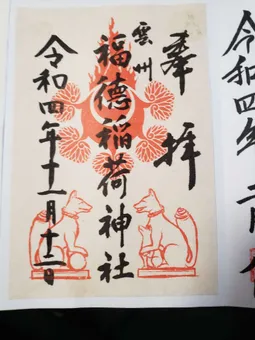 奉拝
雲州
福德稲荷神社
令和四年十一月十二日
令和四年